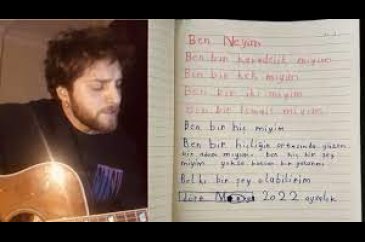 Ben Neyim
Ben bir kardelik miyim
Ben bir kek miyim
Ben bir iki miyim
Ben bir ismail miyim
Ben bir hiç miyim
Ben bir hiçliğin ortasında yüzen
bir adam mıyım. ben hiç bir şey
miyim yoksa bir
Belki bir şey olabilirim
2022